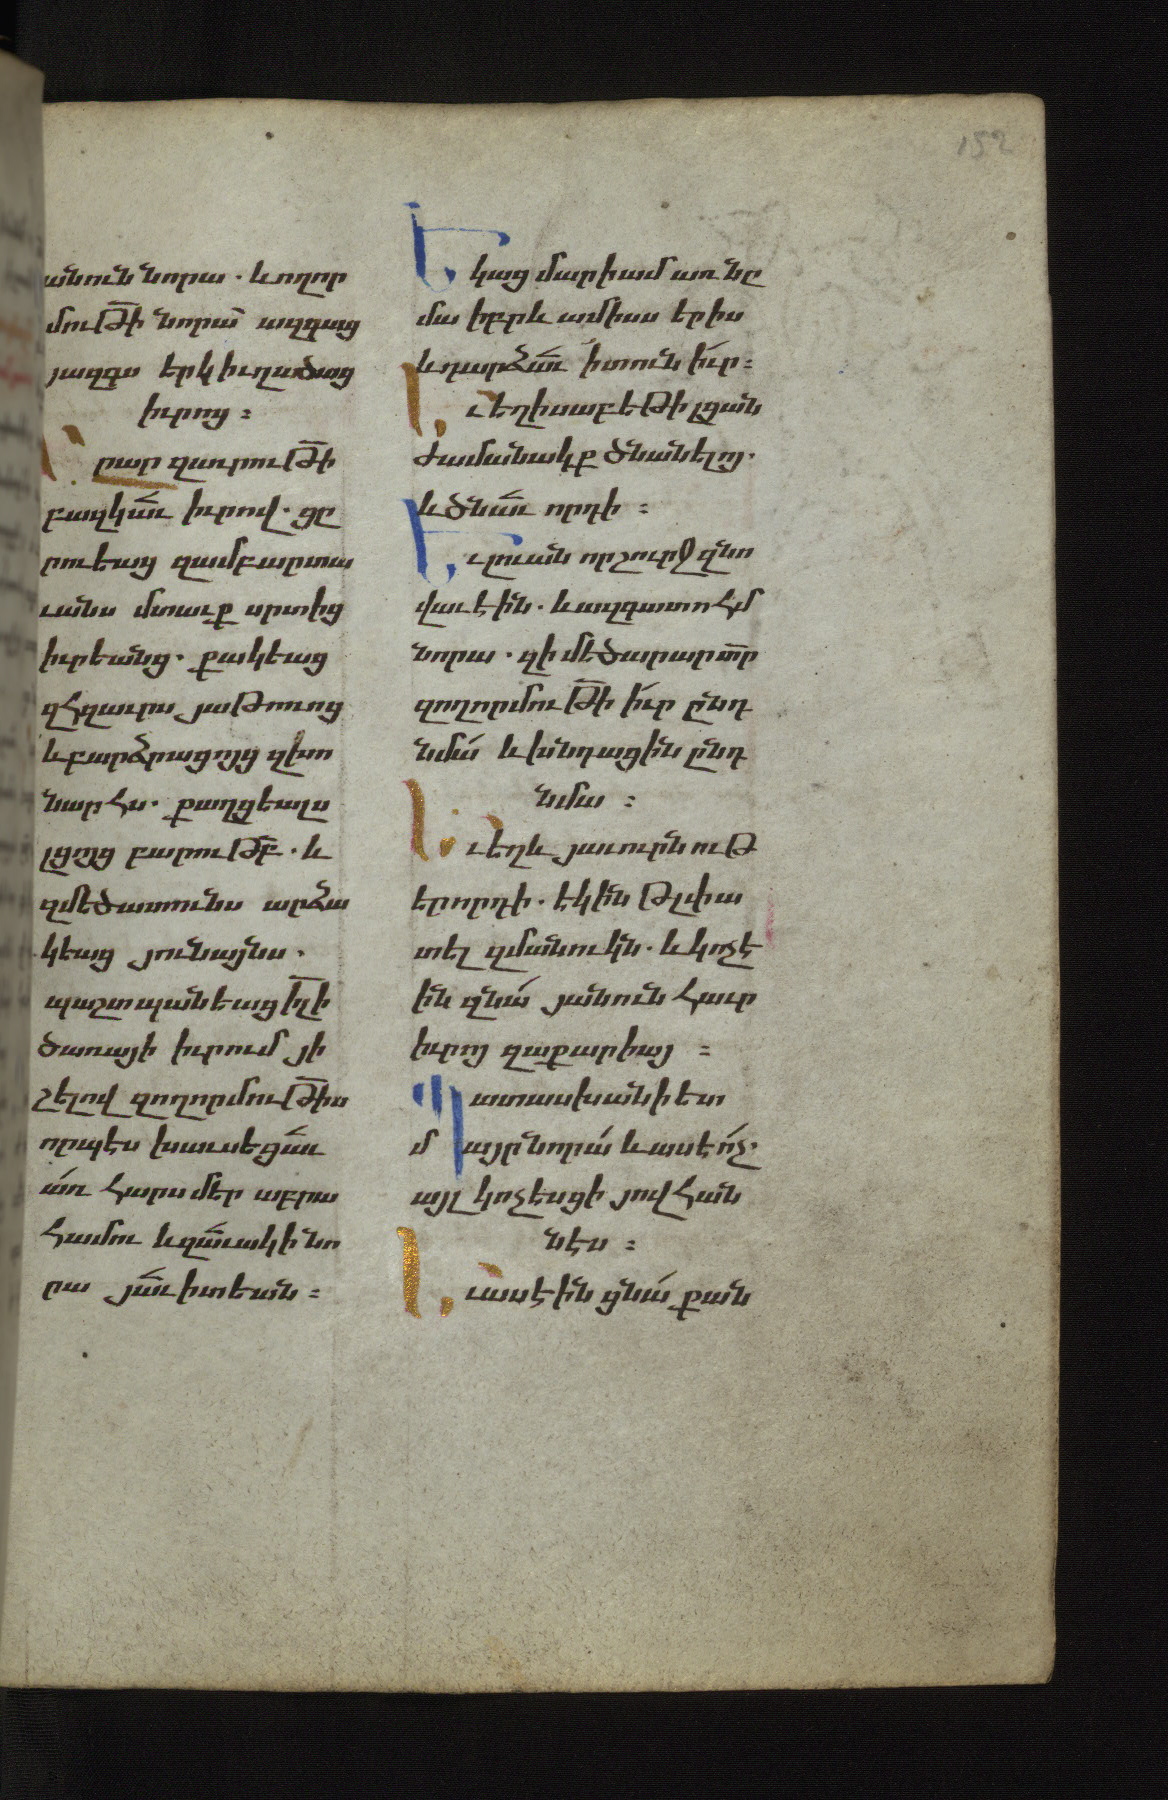 152
անուն նորա . և ողոր
մութի նորա՝ ազգաց
յազգս երկիւղածաց
իւրոց :
Արար զաւրութի
բազկաւ իւրով . ցը
րուեաց զամբարտա
ւանս մտաւք սրտից
իւրեանց . քակեաց
զհզաւրս յաթոռոց
և բարձրացոյց զխո
նարհս . քաղցեալս
լցոյց բարութբ . և
զմեծատունս արձա
կեաց յունայնս .
պաշտպանեաց իլի
ծառայի իւրում յի
շելով զողորմութիս
որպէս խաւսեցաւ
առ հարս մեր աբրա
համու և զաւակի նո
րա յաւիտեան :
Եկաց մարիամ առ նը
մա իբրև ամիսս երիս
և դարձաւ ի տուն իւր :
Եւ եղիսաբեթի լցան
ժամանակք ծնանելոյ .
և ծնաւ որդի :
Եւ լուան որ շուրջ զնո
վաւ էին . և ազգատոհմ
նորա . զի մեծարար տր
զողորմութի իւր ընդ
նմա և խնդացին ընդ
նմա :
Եւ եղև յաւուրն ութ
երորդի . եկին թլփա
տել զմանուկն . և կոչէ
ին զնա յանուն հաւր
իւրոյ զաքարիայ :
Պատասխանի ետ
մայր նորա և ասէ ոչ .
այլ կոչեսցի յովհան
նէս :
Եւ ասէին ցնա քան